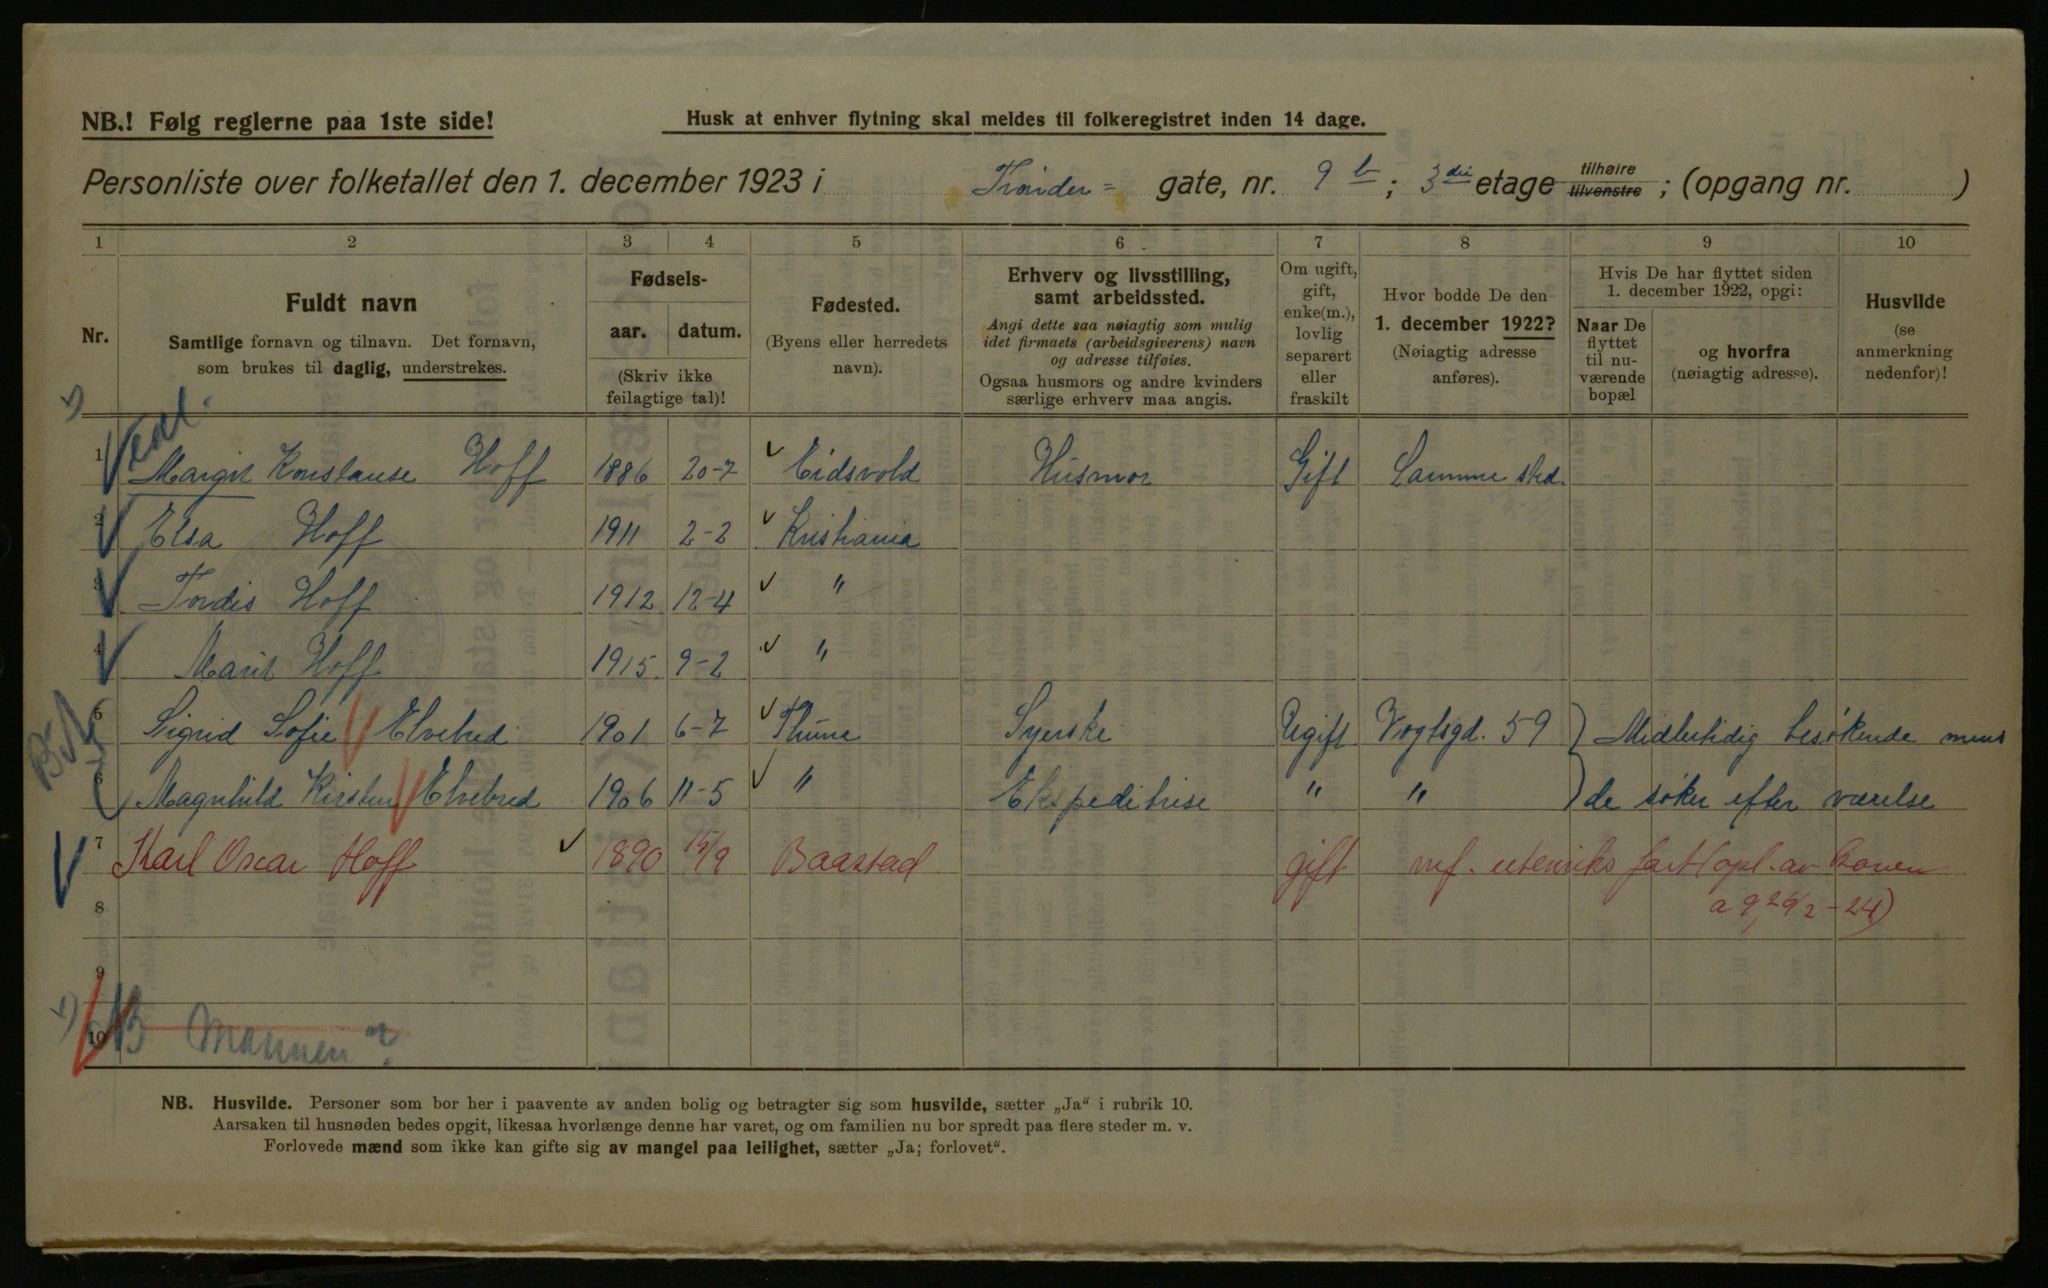 NB.! Følg reglerne paa 1ste side!
Husk at enhver flytning skal meldes til folkeregistret inden 14 dage.
Personliste over folketallet den 1. december 1923 i Tronder- gate, nr. 9 b ; 3die etage tilhøire tilvenstre ; (opgang nr. )
1 2 3 4 5 6 7 8 9 10
Nr.
Fuldt navn
Samtlige fornavn og tilnavn. Det fornavn,
som brukes til daglig, understrekes.
Fødsels-
aar. datum.
(Skriv ikke
feilagtige tal)!
Fødested.
(Byens eller herredets
navn).
Erhverv og livsstilling,
samt arbeidssted.
Angi dette saa nøiagtig som mulig
idet firmaets (arbeidsgiverens) navn
og adresse tilføies.
Ogsaa husmors og andre kvinders
særlige erhverv maa angis.
Om ugift,
gift,
enke(m.),
lovlig
separert
eller
fraskilt
Hvor bodde De den
1. december 1922?
(Nøiagtig adresse
anføres).
Hvis De har flyttet siden
1. december 1922, opgi:
Naar De
flyttet
til nu-
værende
bopæl
og hvorfra
(nøiagtig adresse).
Husvilde
(se
anmerkning
nedenfor)!
1 Margit Konstanse Hoff 1886 20-7 Eidsvold Husmor Gift Samme sted.
2 Elsa Hoff 1911 2-2 Kristiania
3 Tordis Hoff 1912 12-4 "
4 Marit Hoff 1915 9-2 "
5 Sigrid Sofie Elvebred 1901 6-7 Thune Syerske Ugift Vogtsgd. 59 Midlertidig besøkende mens
6 Magnhild Kirsten Elvebred 1906 11-5 " Ekspeditrise " " de søker efter værelse
7 Karl Oscar Hoff 1890 15/9 Baastad gift utenriks fart (opl. av konen
8 a 9, 26/2-24)
9
10 NB Mannen?
NB. Husvilde. Personer som bor her i paavente av anden bolig og betragter sig som husvilde, sætter „Ja“ i rubrik 10.
Aarsaken til husnøden bedes opgit, likesaa hvorlænge denne har varet, og om familien nu bor spredt paa flere steder m. v.
Forlovede mænd som ikke kan gifte sig av mangel paa leilighet, sætter „Ja; forlovet“.